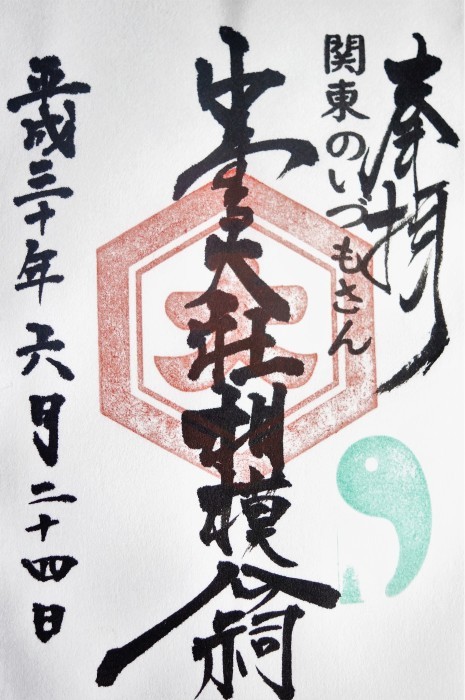 奉拝
関東のいづもさん
出雲大社相模分祠
平成三十年六月二十四日